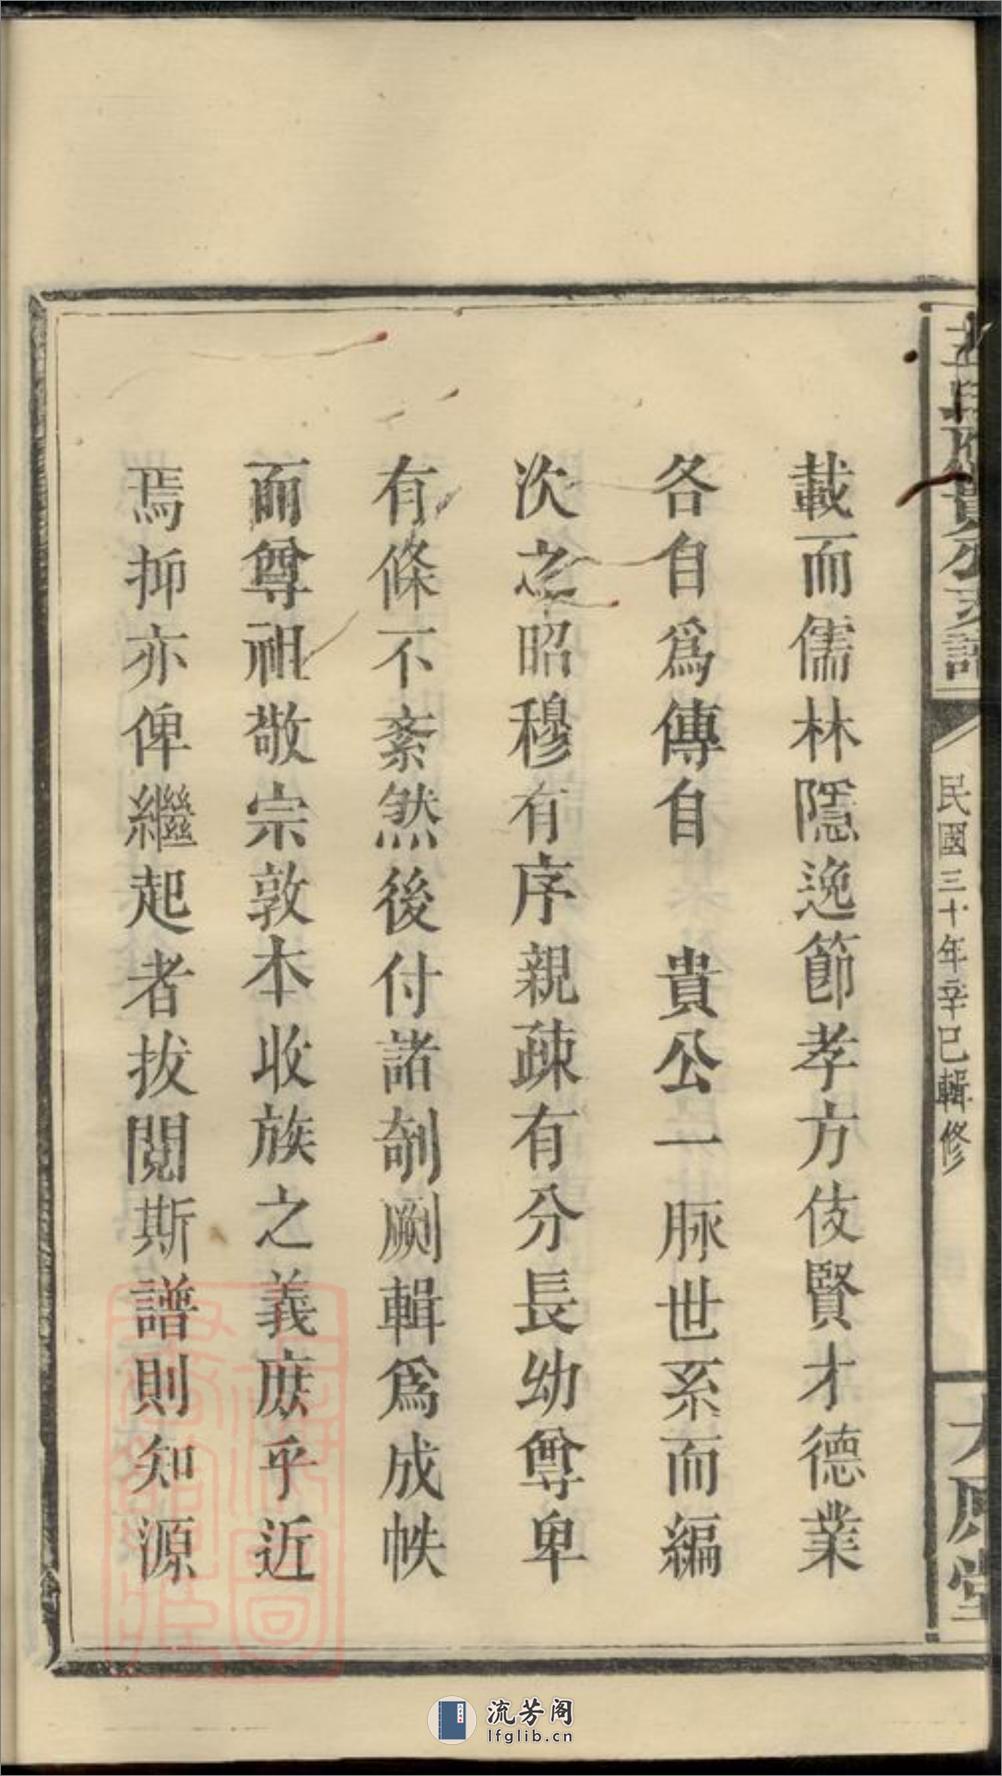 民國三十年辛巳輯修
載而儒林隱逸節孝方伎賢才德業
各自爲傳自 貴公一脉世系而編
次之昭穆有序親疎有分長幼尊卑
有條不紊然後付諸剞劂輯爲成帙
而尊祖敬宗敦本收族之義庶乎近
焉抑亦俾繼起者拔閱斯譜則知源
流芳阁
lfglib.cn